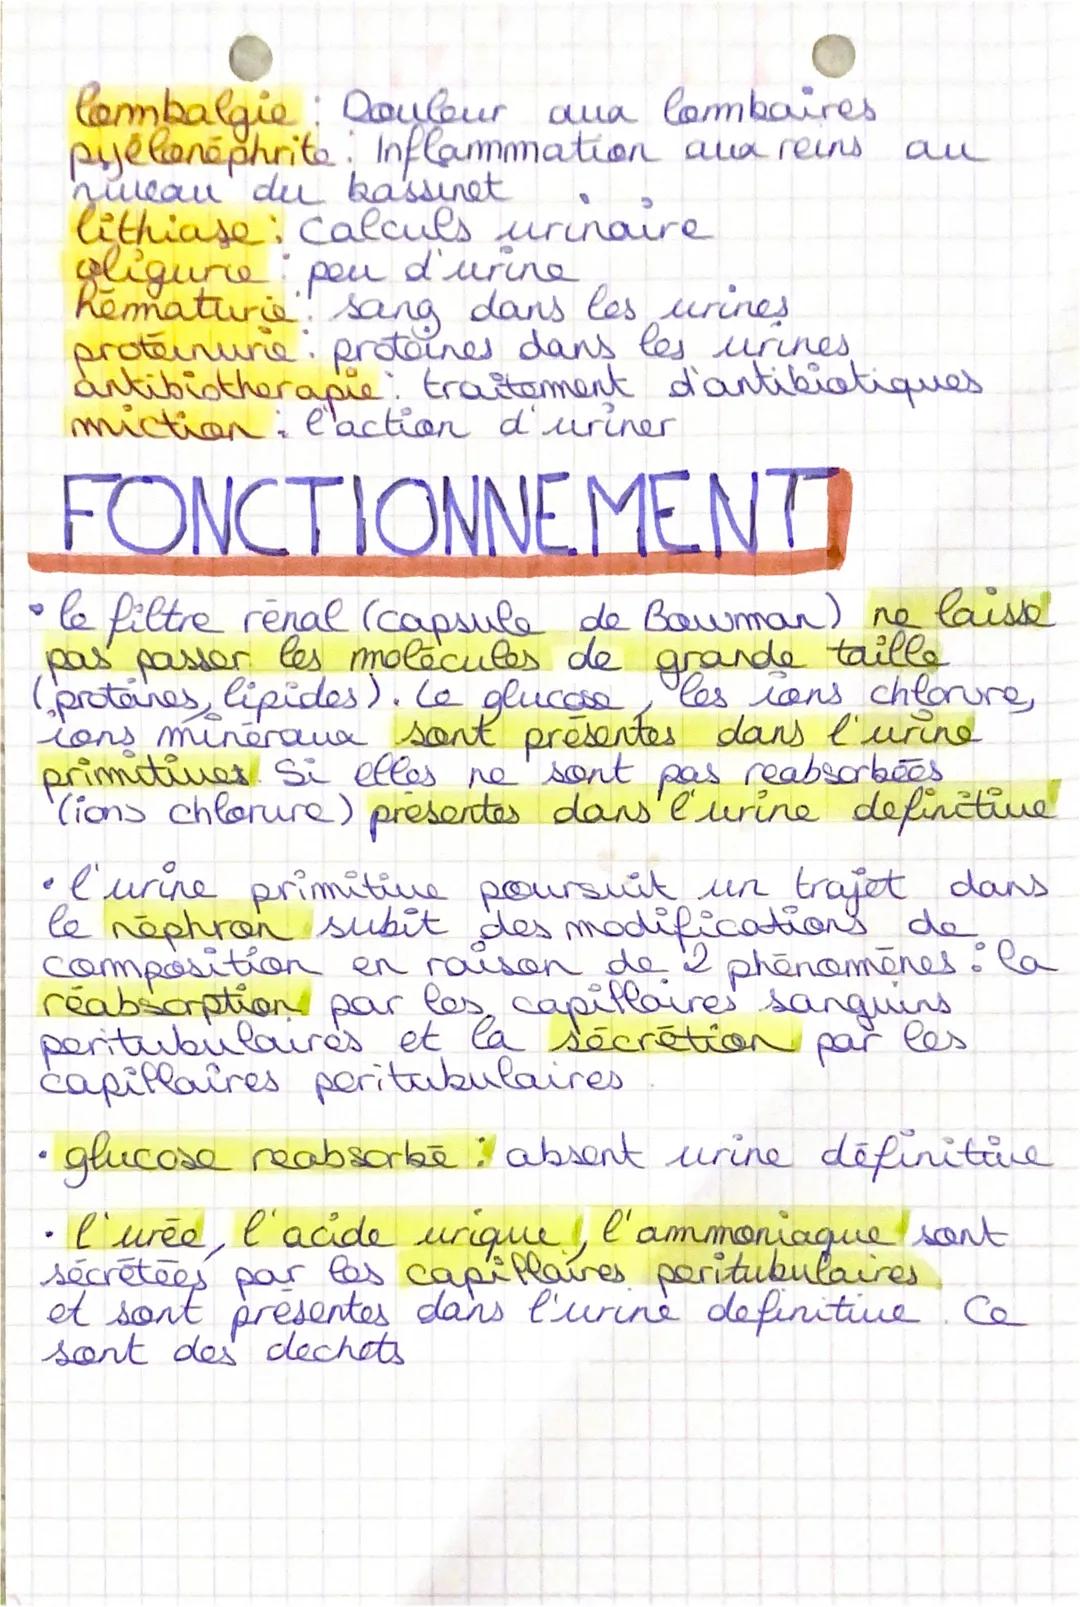 lombalgie : Douleur aux lombaires
pyélonéphrite : Inflammmation aux reins au
niveau du bassinet
lithiase : calculs urinaire
oligurie : peu d'urine
hématurie : sang dans les urines
protéinurie : protéines dans les urines
antibiothérapie : traitement d'antibiotiques
miction : l'action d'uriner
FONCTIONNEMENT
• le filtre rénal (capsule de Bowman) ne laisse
pas passer les molécules de grande taille
(protéines, lipides). Le glucose, les ions chlorure,
ions minéraux sont présentes dans l'urine
primitives. Si elles ne sont pas reabsorbées
(ions chlorure) présentes dans l'urine définitive
• l'urine primitive poursuit un trajet dans
le néphron subit des modifications de
composition en raison de 2 phénomènes : la
réabsorption par les capillaires sanguins
peritubulaires et la sécrétion par les
capillaires peritubulaires
• glucose reabsorbé : absent urine définitive
• l'urée, l'acide urique, l'ammoniaque sont
sécrétées par les capillaires peritubulaires
et sont présentes dans l'urine definitive. Ce
sont des dechets